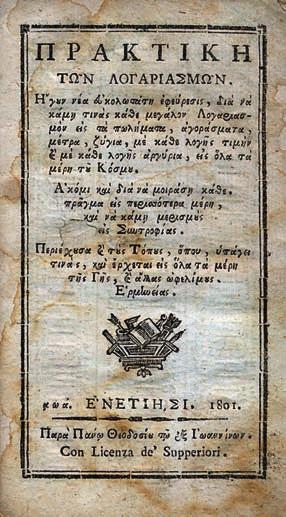 ΠΡΑΚΤΙΚΗ
ΤΩΝ ΛΟΓΑΡΙΑΣΜΩΝ.
Ηʹγουν νέα εὐκολωτάτη ἐφεύρεσις, διὰ νὰ
κάμῃ τινὰς κάθε μεγάλον Λογαριασ-
μὸν εἰς τὰ πωλήματα, ἀγοράσματα,
μέτρα, ζύγια, μὲ κάθε λογῆς τιμὴν
καὶ μὲ κάθε λογῆς ἀργύρια, εἰς ὅλα τὰ
μέρη τοῦ Κόσμου.
Ἀκόμι καὶ διὰ νὰ μοιράσῃ κάθε
πράγμα εἰς περισσότερα μέρη,
καὶ νὰ κάμῃ μερισμοὺς
εἰς Συντροφίας.
Περιέχουσα καὶ τοὺς Τόπους, ὅπου, ὑπάγει
τινὰς, καὶ ἔρχεται εἰς ὅλα τὰ μέρη
τῆς Γῆς, καὶ ἄλλας ὠφελίμους
Ἑρμηνείας.
αωά. ΕʹΝΕΤΙΗ͂ΣΙ. 1801.
Παρὰ Πάνῳ Θεοδοσίου τῷ ἐξ Ἰωαννίνων.
Con Licenza de' Supperiori.